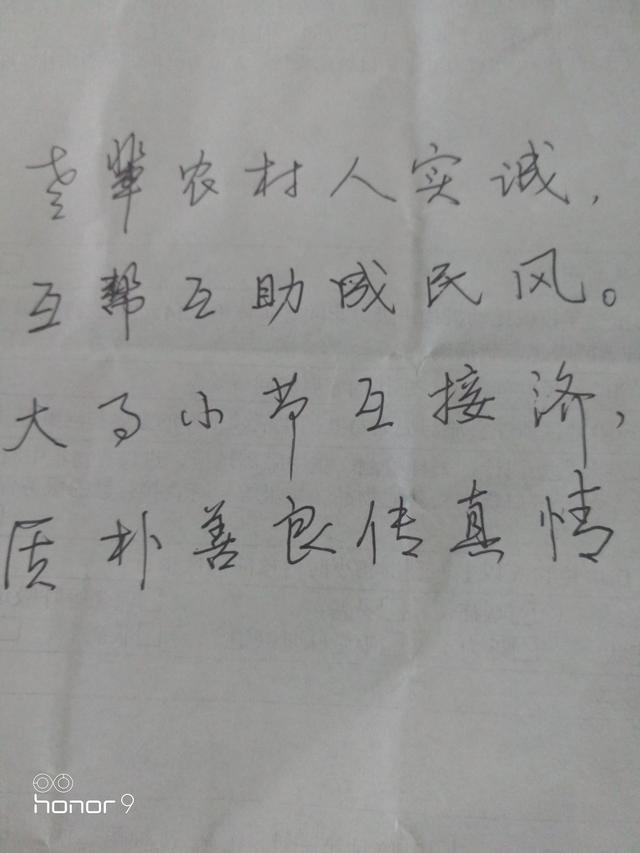 老辈农村人实诚,
互帮互助成民风。
大事小节互接济,
质朴善良传真情
honor 9